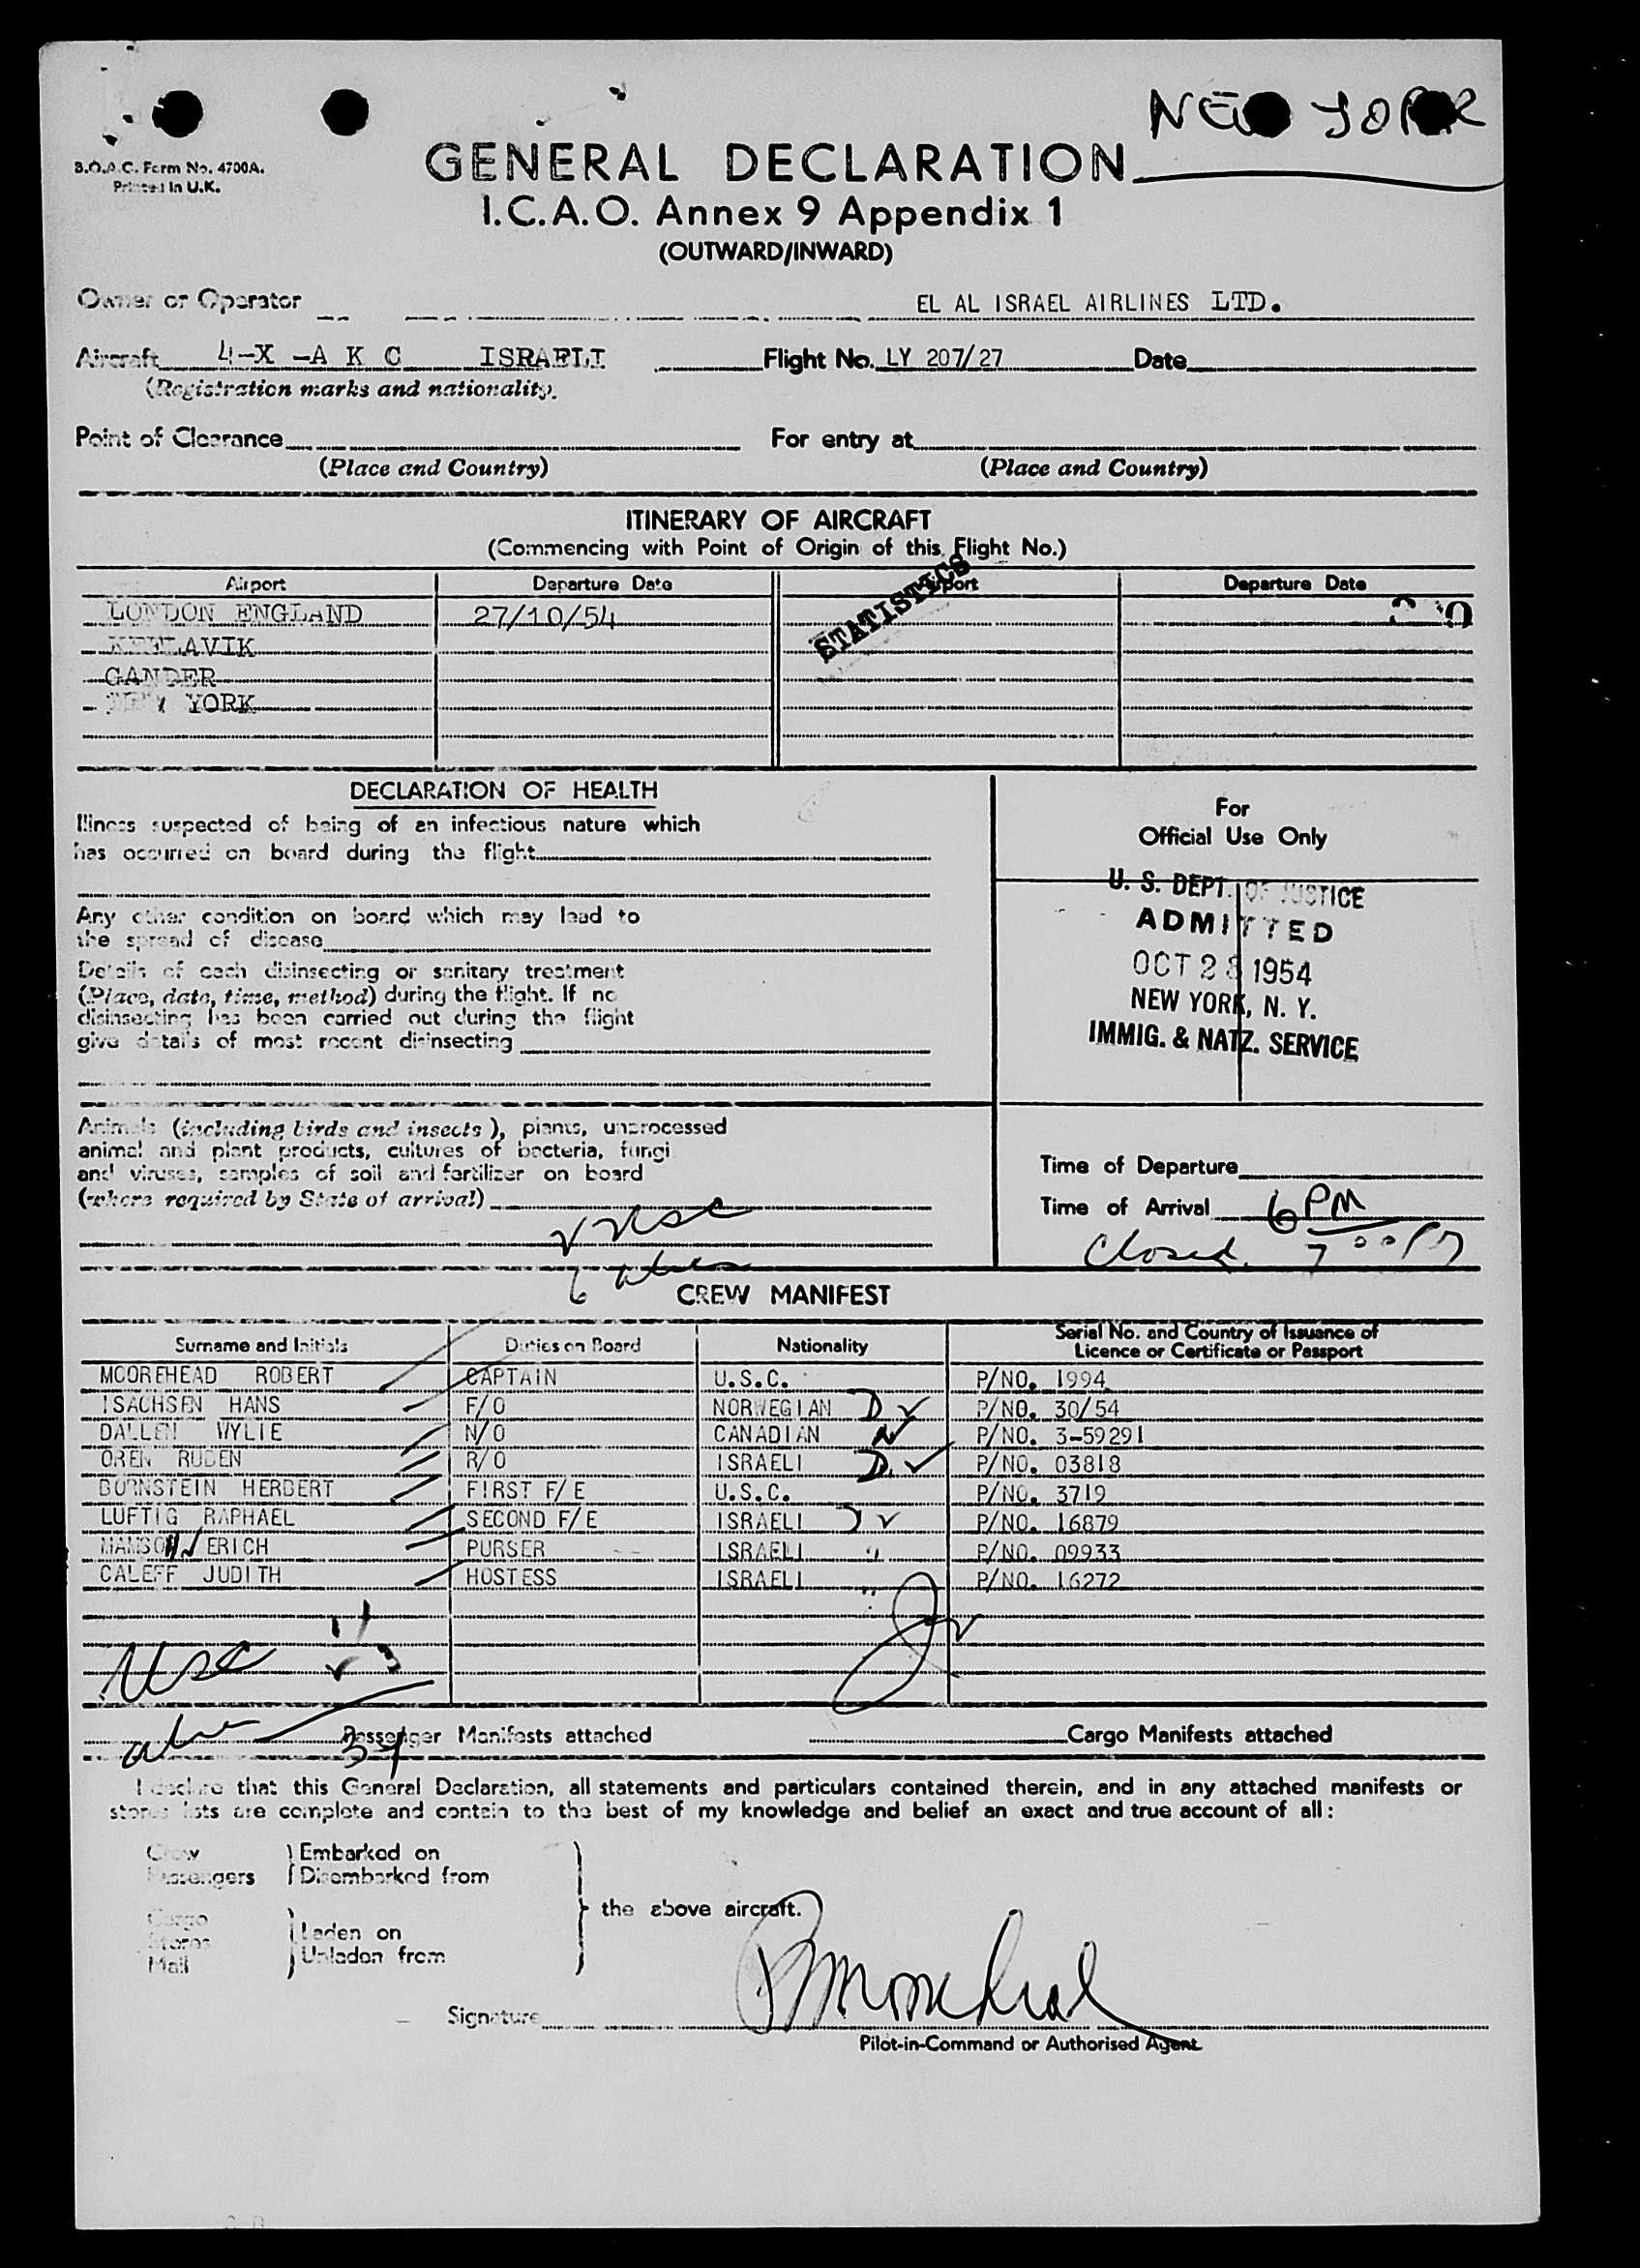 NEW YORK
B.O.A.C. Form No. 4700A.
Printed in U.K.
GENERAL DECLARATION
I.C.A.O. Annex 9 Appendix 1
(OUTWARD/INWARD)
Owner or Operator EL AL ISRAEL AIRLINES LTD.
Aircraft 4-X -A K C ISRAELI Flight No. LY 207/27 Date
(Registration marks and nationality.
Point of Clearance For entry at
(Place and Country) (Place and Country)
ITINERARY OF AIRCRAFT
(Commencing with Point of Origin of this Flight No.)
Airport Departure Date Airport Departure Date
STATISTICS
LONDON ENGLAND 27/10/54
KEFLAVIK
GANDER
NEW YORK
DECLARATION OF HEALTH
Illness suspected of being of an infectious nature which
has occurred on board during the flight
Any other condition on board which may lead to
the spread of disease
Details of each disinsecting or sanitary treatment
(Place, date, time, method) during the flight. If no
disinsecting has been carried out during the flight
give details of most recent disinsecting
For
Official Use Only
U. S. DEPT. OF JUSTICE
ADMITTED
OCT 28 1954
NEW YORK, N. Y.
IMMIG. & NATZ. SERVICE
Animals (including birds and insects), plants, unprocessed
animal and plant products, cultures of bacteria, fungi
and viruses, samples of soil and fertilizer on board
(where required by State of arrival)
Time of Departure
Time of Arrival 6 PM
Closed 7 00 P
USC
6
CREW MANIFEST
Surname and Initials Duties on Board Nationality Serial No. and Country of Issuance of
Licence or Certificate or Passport
MOOREHEAD ROBERT CAPTAIN U.S.C. P/NO. 1994
ISACHSEN HANS F/O NORWEGIAN D ✓ P/NO. 30/54
DALLEN WYLIE N/O CANADIAN P/NO. 3-59291
OREN RUBEN R/O ISRAELI D. ✓ P/NO. 03818
BORNSTEIN HERBERT FIRST F/E U.S.C. P/NO. 3719
LUFTIG RAPHAEL SECOND F/E ISRAELI ✓ P/NO. 16879
ERICH PURSER ISRAELI " P/NO. 09933
CALEFF JUDITH HOSTESS ISRAELI " P/NO. 16272
USC
Passenger Manifests attached Cargo Manifests attached
I declare that this General Declaration, all statements and particulars contained therein, and in any attached manifests or
stores lists are complete and contain to the best of my knowledge and belief an exact and true account of all:
Crew Embarked on
Passengers Disembarked from
the above aircraft.
Cargo
Stores Laden on
Mail Unladen from
Signature R Moorehead
Pilot-in-Command or Authorised Agent